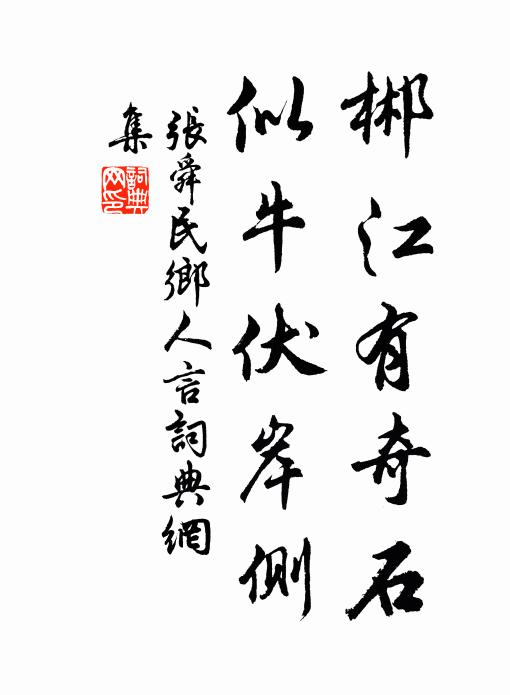 郴江有奇石
似牛伏岸側
張舜民鄉人言詞典網
集
詞典
网印